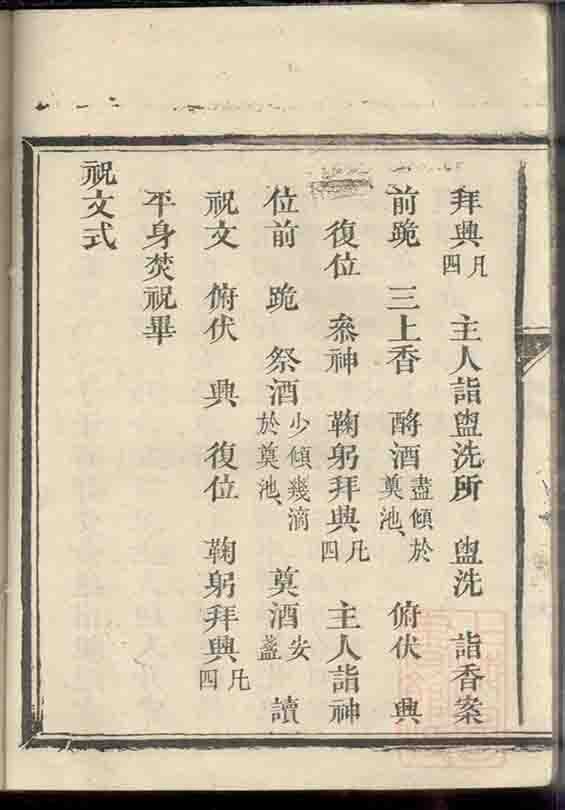 拜興凡四 主人詣盥洗所 盥洗 詣香案
前跪 三上香 酹酒盡傾於奠池、 俯伏 興
復位 叅神 鞠躬拜興凡四 主人詣神
位前 跪 祭酒少傾幾滴於奠池、 奠酒安盞 讀
祝文 俯伏 興 復位 鞠躬拜興凡四
平身焚祝畢
祝文式